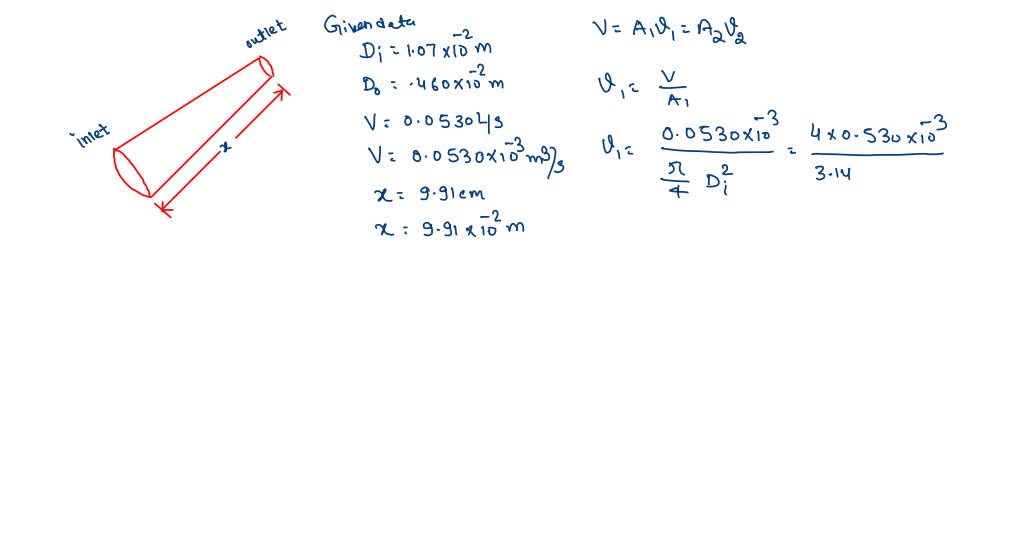 outlet
inlet
x
Given data
Di = 1.07 × 10^-2 m
Do = .460 × 10^-2 m
V = 0.0530 L/s
V = 0.0530 × 10^-3 m3/s
x = 9.91 cm
x = 9.91 × 10^-2 m
V = A1 ϑ1 = A2 ϑ2
ϑ1 = V / A1
ϑ1 = 0.0530 × 10^-3 / (π/4 Di^2) = 4 × 0.530 × 10^-3 / 3.14